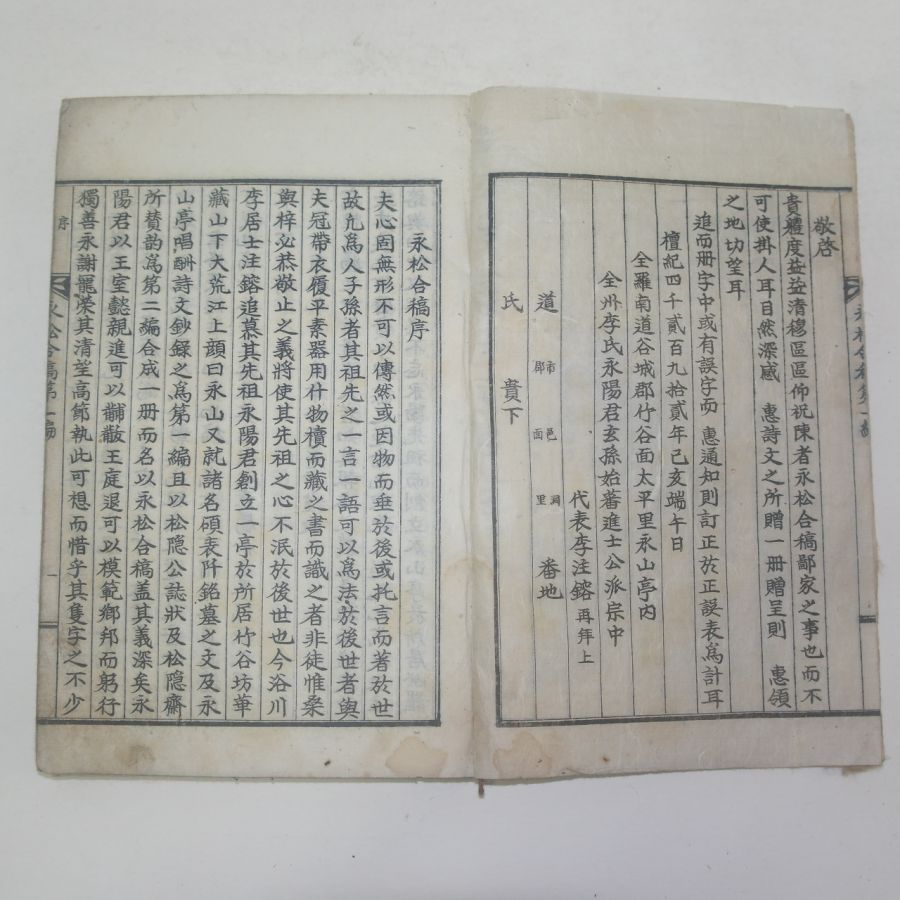 敬啓
貴軆度益益清穆區區仰祝陳者永松合稿鄙家之事也而不
可使掛人耳目然深感 惠詩文之所贈一册贈呈則 惠領
之地切望耳
追而册字中或有誤字而 惠通知則訂正於正誤表爲計耳
檀紀四千貳百九拾貳年己亥端午日
全羅南道谷城郡竹谷面太平里永山亭內
全州李氏永陽君玄孫始蕃進士公派宗中
代表李注鎔再拜上
道 市郡 邑面 洞里 番地
氏 貴下
永松合稿第一編
永松合稿序
夫心固無形不可以傳然或因物而垂於後或托言而著於世
故凢爲人子孫者其祖先之一言一語可以爲法於後世者與
夫冠帶衣履平素器用什物櫝而藏之書而識之者非徒惟桑
與梓必恭敬止之義將使其先祖之心不泯於後世也今浴川
李居士注鎔追慕其先祖永陽君創立一亭於所居竹谷坊華
藏山下大荒江上顔曰永山又就諸名碩表阡銘墓之文及永
山亭唱酬詩文鈔錄之爲第一編且以松隐公誌狀及松隐齋
所贊韵爲第二編合成一册而名以永松合稿盖其義深矣永
陽君以王室懿親進可以黼黻王庭退可以模範鄕邦而躬行
獨善永謝罷榮其清望高節執此可想而惜乎其隻字之不少
序
永松合稿第一編
一